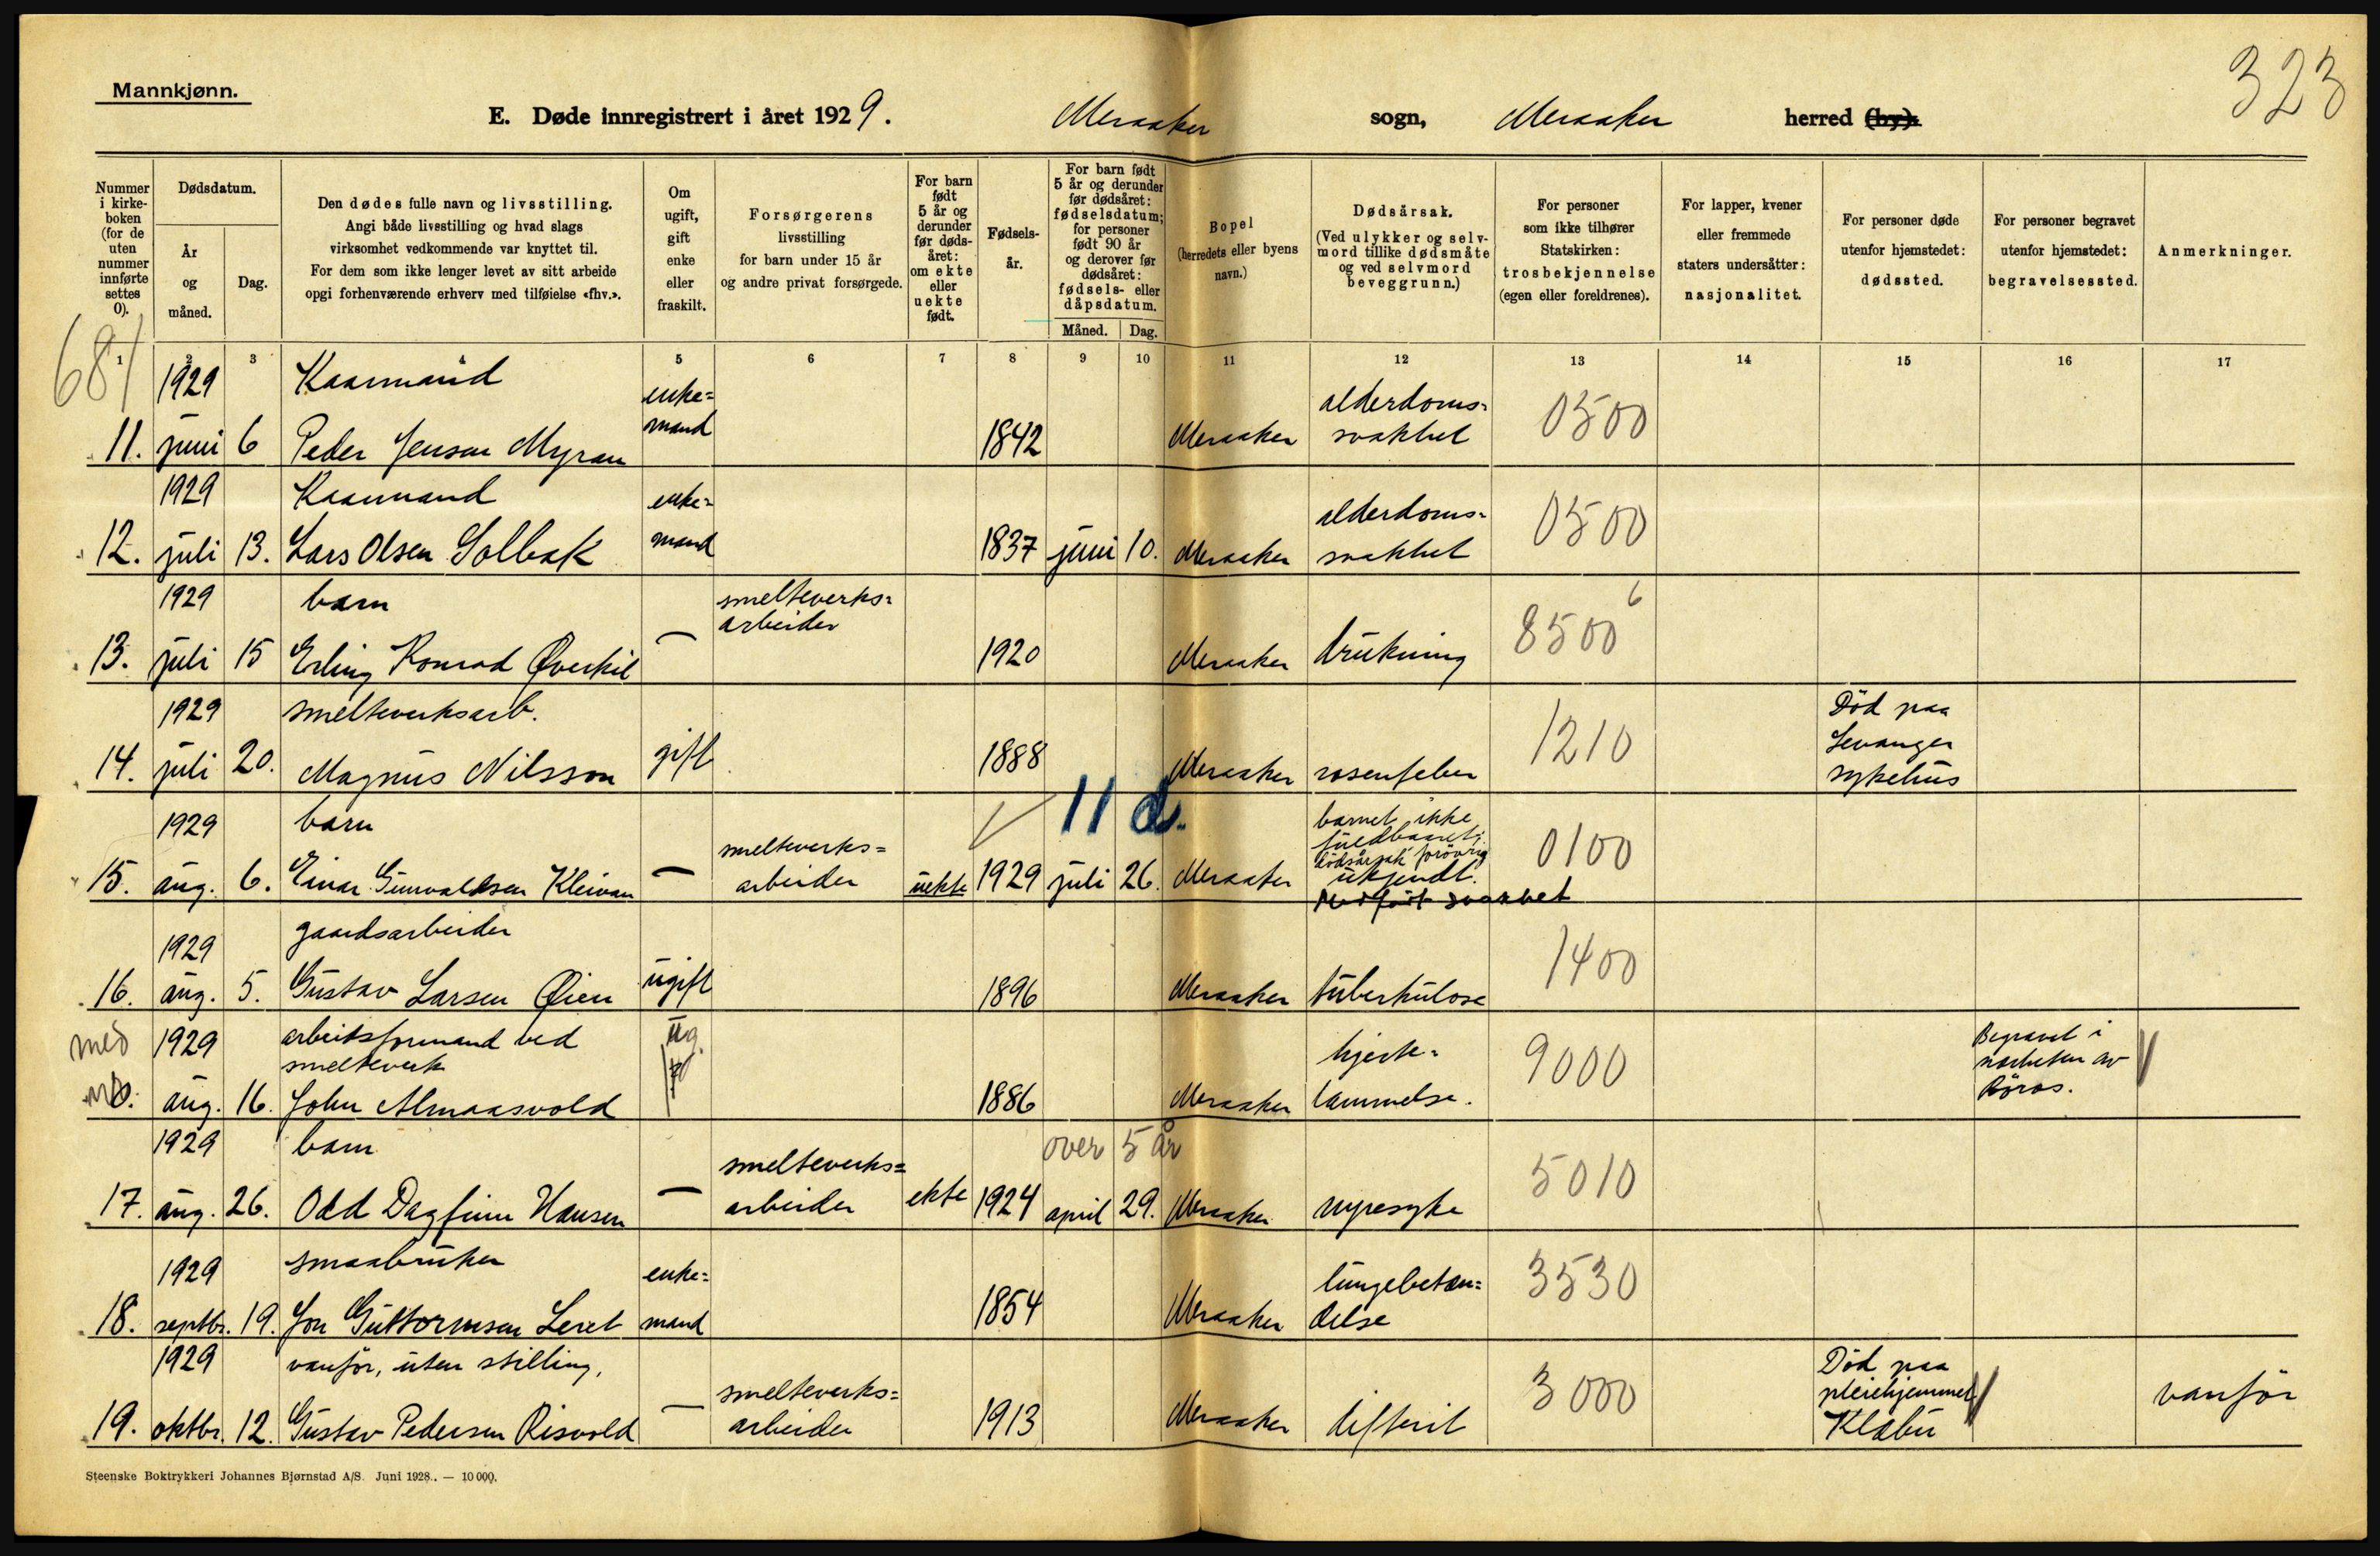 Mannkjønn.
323
E. Døde innregistrert i året 1929. Meraaker sogn, Meraaker herred (by).
Nummer i kirkeboken (for de uten nummer innførte settes 0).
Dødsdatum.
År og måned.
Dag.
Den dødes fulle navn og livsstilling.
Angi både livsstilling og hvad slags
virksomhet vedkommende var knyttet til.
For dem som ikke lenger levet av sitt arbeide
opgi forhenværende erhverv med tilføielse «fhv.».
Om ugift, gift enke eller fraskilt.
Forsørgerens
livsstilling
for barn under 15 år
og andre privat forsørgede.
For barn født 5 år og derunder før dødsåret: om ekte eller uekte født.
Fødselsår.
For barn født 5 år og derunder før dødsåret: fødselsdatum; for personer født 90 år og derover før dødsåret: fødsels- eller dåpsdatum.
Måned. Dag.
Bopel
(herredets eller byens
navn.)
Dødsårsak.
(Ved ulykker og selvmord tillike dødsmåte og ved selvmord beveggrunn.)
For personer
som ikke tilhører
Statskirken:
trosbekjennelse
(egen eller foreldrenes).
For lapper, kvener
eller fremmede
staters undersåtter:
nasjonalitet.
For personer døde
utenfor hjemstedet:
dødssted.
For personer begravet
utenfor hjemstedet:
begravelsessted.
Anmerkninger.
1 2 3 4 5 6 7 8 9 10 11 12 13 14 15 16 17
681
1929 Kaarmand enke= alderdoms=
11. juni 6 Peder Jensen Myran mand 1842 Meraaker svakhet 0500
1929 Kaarmand enke= alderdoms=
12. juli 13. Lars Olsen Solbak mand 1837 juni 10. Meraaker svakhet 0500
1929 barn smelteverks= 6
arbeider
13. juli 15 Erling Konrad Øverkil — 1920 Meraaker drukning 8500
1929 smelteverksarb. Död paa
Levanger
14. juli 20. Magnus Nilsson gift 1888 Meraaker rosenfeber 1210 sykehus
11 d.
1929 barn smelteverks= barnet ikke
fuldbaaret;
dödsårsak forövrig
15. aug. 6. Einar Gunvaldsen Kleivan — arbeider uekte 1929 juli 26. Meraaker ukjendt. 0100
Medfödt svakhet
1929 gaardsarbeider
16. aug. 5. Gustav Larsen Øien ugift 1896 Meraaker tuberkulose 1400
med 1929 arbeidsformand ved ug. hjerte= Begravet i
smelteverk nærheten av
no. aug. 16. John Almaasvold 1886 Meraaker lammelse. 9000 Röros.
1929 barn smelteverks= over 5 år
17. aug. 26. Odd Dagfinn Hansen — arbeider ekte 1924 april 29. Meraaker nyresyke 5010
1929 smaabruker enke= lungebetæn=
18. septbr. 19. Jon Guttormsen Leret mand 1854 Meraaker delse 3530
1929 vanför, uten stilling, smelteverks= Död paa
pleiehjemmet
19. oktbr. 12. Gustav Pedersen Risvold — arbeider 1913 Meraaker difterit 3000 Klæbu vanför
Steenske Boktrykkeri Johannes Bjørnstad A/S. Juni 1928. — 10 000.